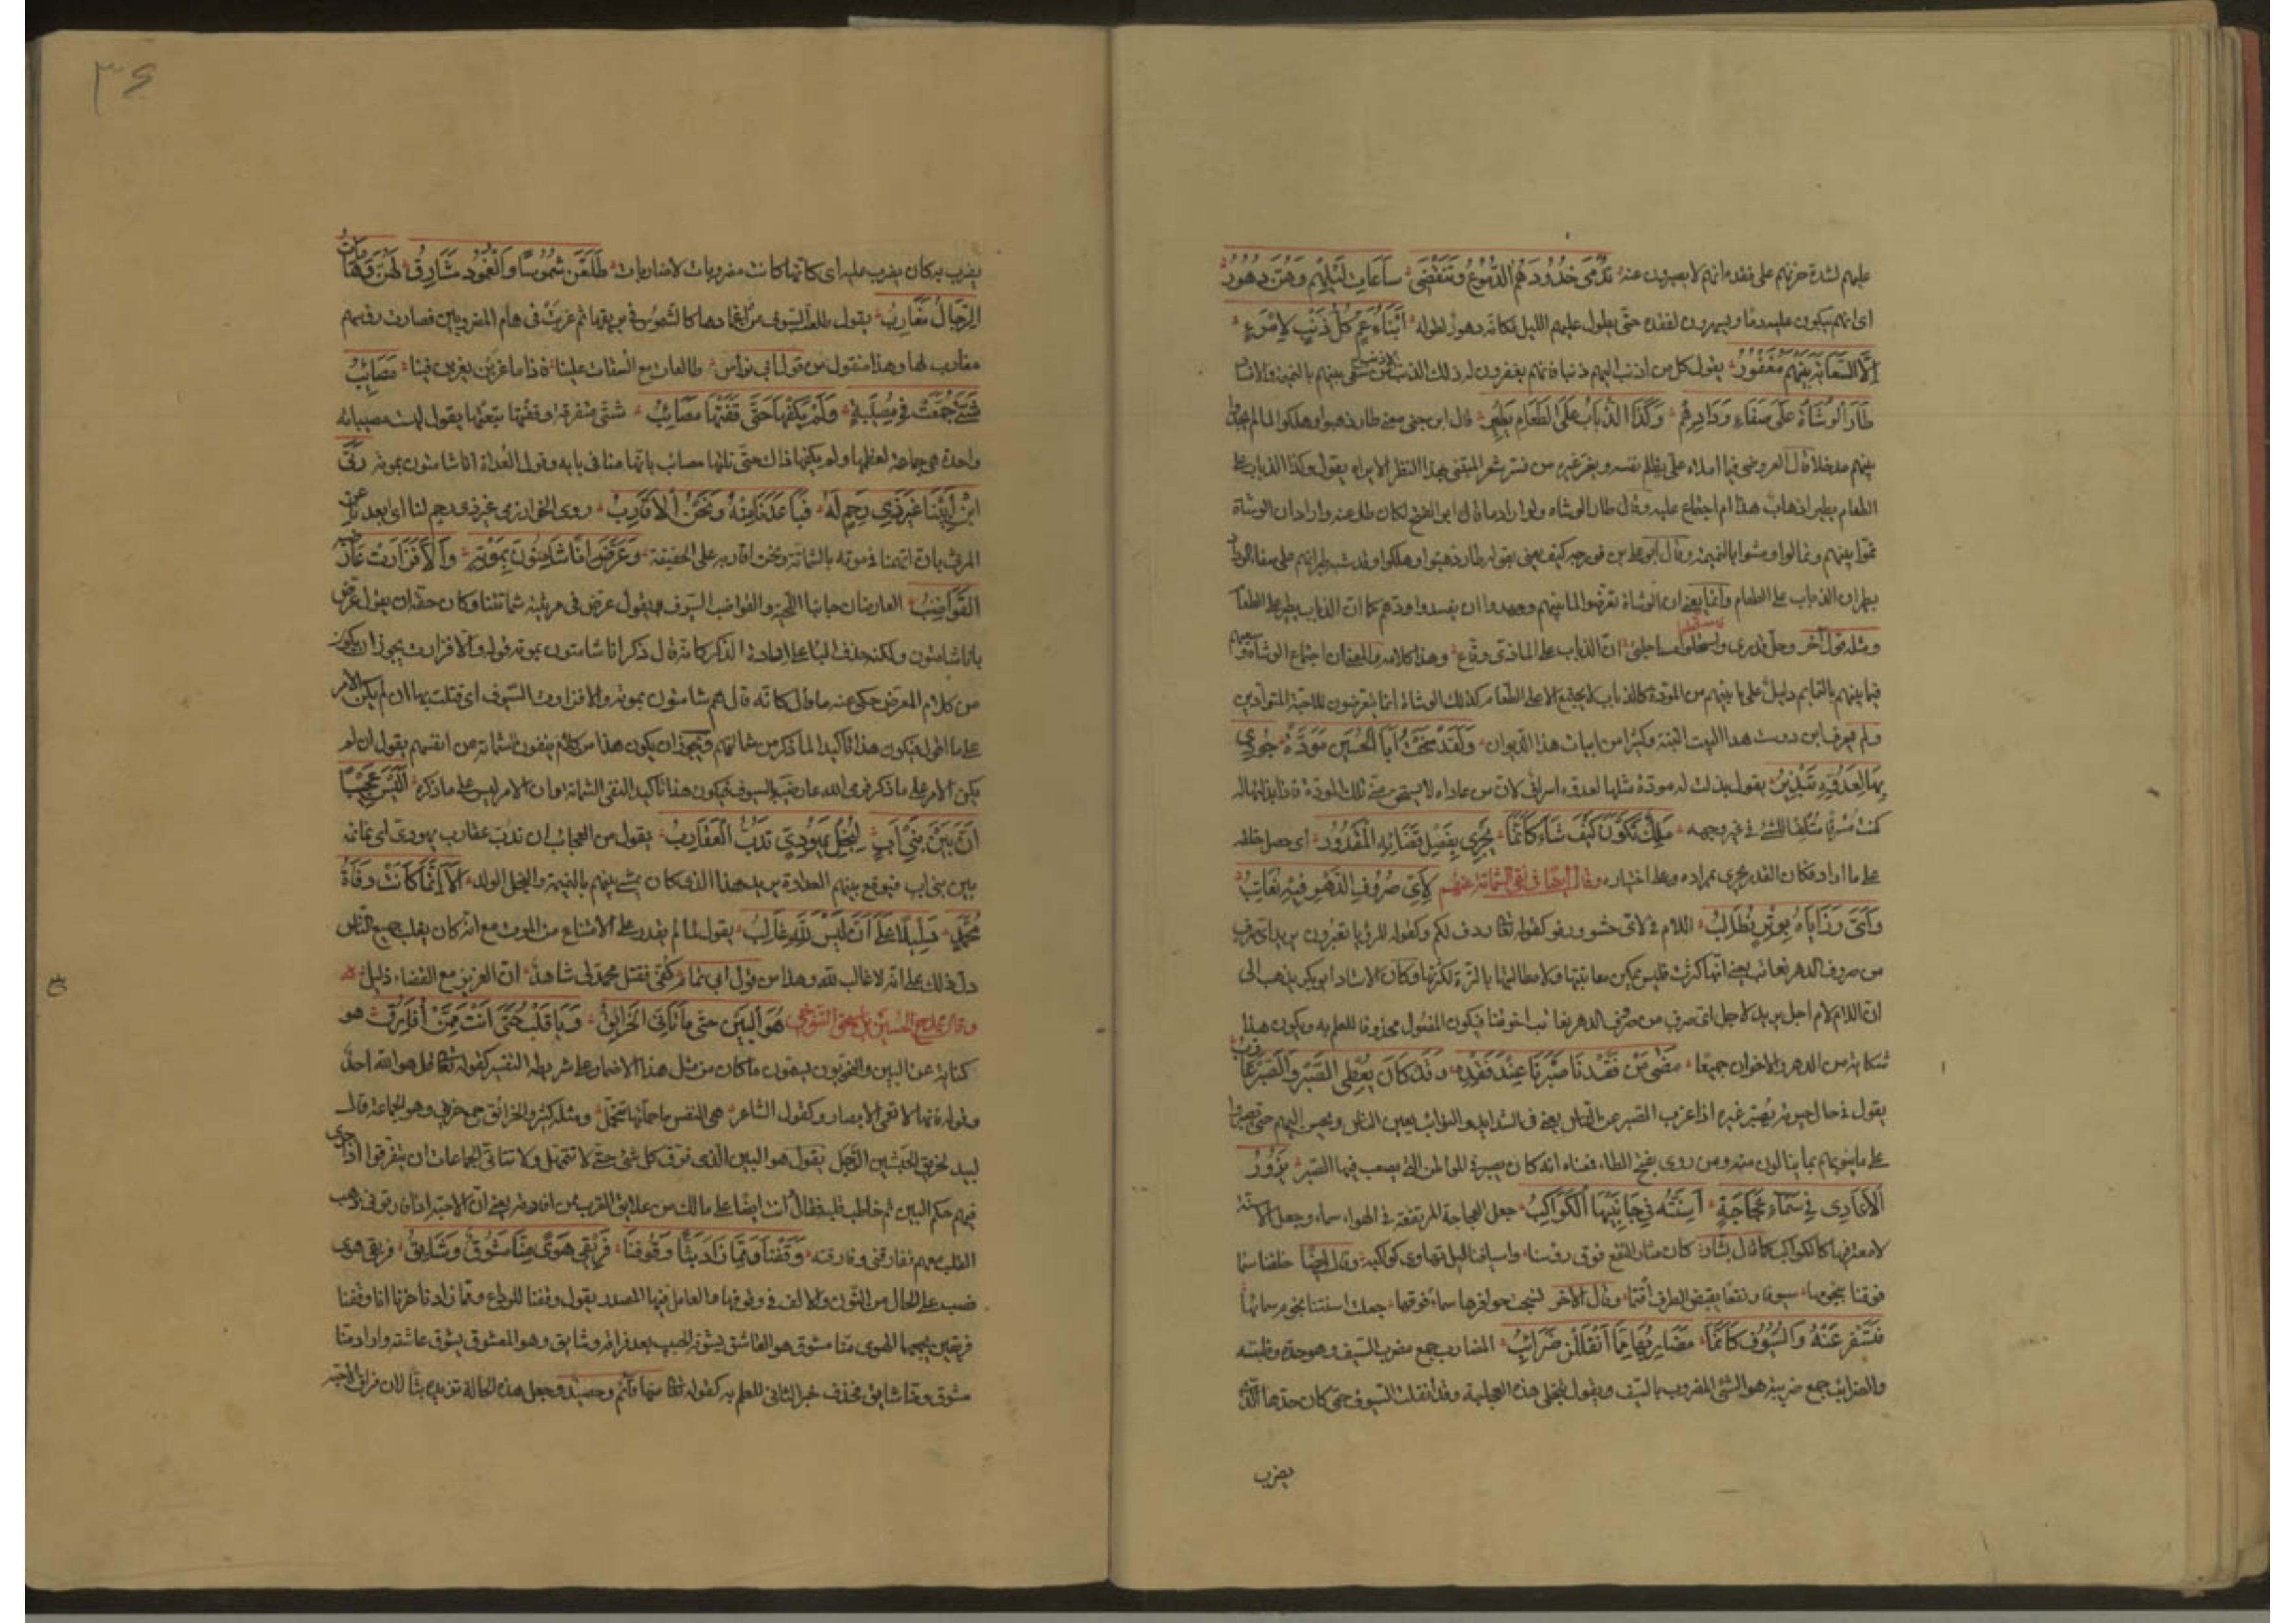 عليهم لشدة حزنهم على فقده انهم لا يصبرون عنه تُدْمِى خُدُودَهُمُ الدُّمُوْعُ وَتَنْقَضِى سَاعَاتُ لَيْلِهِمُ وَهُنَّ دُهُوْرُ
اى انهم يبكون عليه دما ويسهرون لفقده حتى يطول عليهم الليل فكانه دهور لطوله اَبْنَاءُ عَمٍّ كُلُّ ذَنْبٍ لِامْرِءٍ
اِلَّا السِّعَايَةَ بَيْنَهُمْ مَغْفُوْرُ يقول كل من اذنب اليهم ذنبا فانهم يغفرون له ذلك الذنب الا ذنب من سعى بينهم بالنميمة والافساد
طَارَ الْوُشَاةُ عَلَى صَفَاءِ وِدَادِهِمْ وَكَذَا الذُّبَابُ عَلَى الطَّعَامِ يَطِيْرُ قال ابن جنى معنى طار ذهبوا وهلكوا لما لم يجدوا
بينهم مدخلا قال العروضى فيما املاه على يظلم نفسه ويغر غيره من فسر شعر المتنبى بهذا النظر الا يراه يقول وكذا الذباب على
الطعام يطير اذهاب هذا ام اجتماع عليه وقال طار الوشاة ولو اراد ما قال ابو الفتح لكان طار عنه واراد ان الوشاة
نموا بينهم وتمالوا ومشوا بالنميمة وقال ابو على بن فورجه كيف يعنى بقوله طار ذهبوا وهلكوا وقد شبه طيرانهم على صفاء الوداد
بطيران الذباب على الطعام وانما يعنى ان الوشاة تعرضوا لما بينهم وجهدوا ان يفسدوا ودهم كما ان الذباب يطير على الطعام
ومثله قول آخر وجل قدرى واستحلوا مساجلتى ان الذباب على الماذى وقاع وهذا كلامه والمعنى ان اجتماع الوشاة وسعيهم
فيما بينهم بالنمايم دليل على ما بينهم من المودة كالذباب لا يجتمع الا على الطعام كذلك الوشاة انما يتعرضون للاحبة المتوادين
ولم يعرف ابن دوست هذا البيت البتة وكثيرا من ابيات هذا الديوان وَلَقَدْ مَنَحْتُ اَبَا الْحُسَيْنِ مَوَدَّةً جُوْدِى
بِهَا لِعَدُوِّهِ تَبْذِيْرُ يقول بذلت له مودة مثلها لعدوه اسراف لان من عاداه لا يستحق منى تلك المودة فاذا بذلتها له
كنت مسرفا متلفا للشئ فى غير وجهه مَلِكٌ تَكَوَّنَ كَيْفَ شَاءَ كَاَنَّمَا يَجْرِى بِفَصْلِ قَضَائِهِ الْمَقْدُوْرُ اى حصل خلقه
على ما اراد فكان القدر يجرى بمراده وعلى اختياره وقال ايضا فى نفى الشماتة عنهم لِاَىِّ صُرُوْفِ الدَّهْرِ فِيْهِ نُعَاتِبُ
وَاَىَّ رَزَايَاهُ بِوِتْرٍ نُطَالِبُ اللام فى لاى حشو وهو كقوله تعالى ردف لكم وكقوله للرؤيا تعبرون يريد اى صرف
من صروف الدهر نعاتب يعنى انها كثرت فليس يمكن معاتبتها ولا مطالبتها بالترة لكثرتها وكان الاستاد ابو بكر يذهب الى
ان اللام لام اجل يريد لاجل اى صرف من صرف الدهر نعاتب اخوتنا فيكون المفعول محذوفا للعلم به ويكون هذا
شكاية من الدهر والاخوان جميعا مَضَى مَنْ فَقَدْنَا صَبْرَنَا عِنْدَ فَقْدِهِ وَقَدْ كَانَ يُعْطِى الصَّبْرَ وَالصَّبْرُ عَازِبُ
يقول فى حال حيوته يصبر غيره اذا عزب الصبر عن الناس يعنى فى الشدايد والنوائب يعين الناس ويحسن اليهم حتى يصبروا
على ما ينوبهم بما ينالون منه ومن روى بفتح الطاء فمعناه انه كان يصبر فى المواطن التى يصعب فيها الصبر يَزُوْرُ
الْاَعَادِى فِى سَمَاءِ عَجَاجَةٍ اَسِنَّتُهُ فِى جَانِبَيْهَا الْكَوَاكِبُ جعل العجاجة المرتفعة فى الهواء سماء وجعل الاسنة
لامعة فيها كالكواكب كما قال بشار كان مثار النقع فوق رؤسنا واسيافنا ليل تهاوى كواكبه وقال ايضا خلقنا سما
فوقنا بنجومها سيوفا ونقعا يقبض الطرف اقتما وقال الاخر نسجت حوافرها سماء فوقها جعلت اسنتنا نجوم سمائها
فَتُسْفِرُ عَنْهُ وَالسُّيُوْفُ كَاَنَّمَا مَضَارِبُهَا مِمَّا انْفَلَلْنَ ضَرَائِبُ المضارب جمع مضرب السيف وهو حده وظبته
والضرائب جمع ضريبة هو الشئ المضروب بالسيف ويقول تنجلى هذه العجاجة وقد انفلت السيوف حتى كان حدها الذى
يضرب
٣٤
يضرب به كان يضرب عليه اى كانها كانت مضروبات لا ضاربات طَلَعْنَ شُمُوْسًا وَالْغُمُوْدُ مَشَارِقٌ لَهُنَّ وَهَامَاتُ
الرِّجَالِ مَغَارِبُ يقول طلعت السيوف من اغمادها كالشموس فى بريقها ثم غربت فى هام المضروبين فصارت رؤسهم
مغارب لها وهذا منقول من قول ابى نواس طالعات مع السقاة علينا فاذا ما غربن يغربن فينا مَصَائِبُ
شَتّٰى جُمِّعَتْ فِى مُصِيْبَةٍ وَلَمْ يَكْفِهَا حَتّٰى قَفَتْهَا مَصَائِبُ شتى متفرقة وقفتها تبعتها يقول ليست مصيباته
واحدة هى جماعة لعظمها ولم يكفها ذلك حتى تلتها مصائب باتهامنا فى بابه وقول العداة انا شامتون بموته رَثٰى
ابْنَ اَبِيْنَا غَيْرُ ذِى رَحِمٍ لَهُ فَبَاعَدَنَا مِنْهُ وَنَحْنُ الْاَقَارِبُ روى الخوارزمى غير ذى رحم لنا اى بعدنا عن
المرثى بان اتهمنا فى موته بالشماتة ونحن اقاربه على الحقيقة وَعَرَّضَ اَنَّا شَامِتُوْنَ بِمَوْتِهِ وَاِلَّا فَزَارَتْ عَارِضَيْهِ
الْقَوَاضِبُ العارضان جانبا اللحية والقواضب السيوف يقول عرض فى مرثيته شماتتنا وكان حقه ان يقول عرض
بانا شامتون ولكنه حذف الباء على ارادة الذكر كانه قال ذكر انا شامتون بموته قوله والا فزارت يجوز ان يكون
من كلام المعرض حكى عنه ما قال كانه قال هم شامتون بموته والا فزارت السيوف اى قتلت بها ان لم يكن الامر
على ما اقول فيكون هذا تاكيدا لما ذكر من شماتتهم ويجوز ان يكون هذا من كلام ينفون الشماتة من انفسهم يقول ان لم
يكن الامر على ما ذكر فرمى الله عارضيه بالسيوف فيكون هذا تاكيد النفى الشماتة وان الامر ليس على ما ذكره اَلَيْسَ عَجِيْبًا
اَنَّ بَيْنَ بَنِى اَبٍ لِنَجْلِ يَهُوْدِىٍّ تَدُبُّ الْعَقَارِبُ يقول من العجائب ان تدب عقارب يهودى اى نمائمه
بين بنى اب فيوقع بينهم العداوة يريد هذا الذى كان يمشى بينهم بالنميمة والنجل الولد اَلَا اِنَّمَا كَانَتْ وَفَاةُ
مُحَمَّدٍ دَلِيْلًا عَلٰى اَنْ لَيْسَ لِلّٰهِ غَالِبُ يقول لما لم يقدر على الامتناع من الموت مع انه كان يغلب جميع الناس
دل ذلك على انه لا غالب لله وهذا من قول ابى تمام كفى فقتل محمد لى شاهد ان العزيز مع القضاء ذليل
وقال يمدح الحسين بن اسحق التنوخى هُوَ الْبَيْنُ حَتّٰى مَا تَاَنّٰى الْحَزَائِقُ وَيَا قَلْبُ حَتّٰى اَنْتَ مِمَّنْ اُفَارِقُ هو
كناية عن البين والنحويون يسمون ما كان من مثل هذا الاضمار على شريطة التفسير كقوله تعالى قل هو الله احد
وقوله فانها لا تعمى الابصار وكقول الشاعر هى النفس ما حملتها تتحمل ومثله كثير والحزائق جمع حزيق وهو الجماعة قال
لبيد كحزيق الحبشيين الزجل يقول هو البين الذى فرق كل شئ حتى لا تتمهل ولا تتانى الجماعات ان يتفرقوا اذا جرى
فيهم حكم البين ثم خاطب قلبه فقال انت ايضا على مالك من علايق القرب ممن افارقه يعنى ان الاحبة اذا فارقونى ذهب
القلب معهم ففارقنى وفارقته وَقَفْنَا وَمِمَّا زَادَ بَثًّا وُقُوْفُنَا فَرِيْقَىْ هَوًى مِنَّا مَشُوْقٌ وَشَائِقُ فريقى هوى
نصب على الحال من النون والالف فى وقوفنا والعامل فيها المصدر يقول وقفنا للوداع ومما زادنا حزنا انا وقفنا
فريقين يجمعهما الهوى منا مشوق هو العاشق يشوقه الحبيب بعد فراقه وشايق وهو المعشوق يشوق عاشقه واراد منا
مشوق ومنا شايق فحذف خبر الثانى للعلم به كقوله تعالى منها قائم وحصيد وجعل هذه الحالة تزيده بثا لان فراق الاحبة